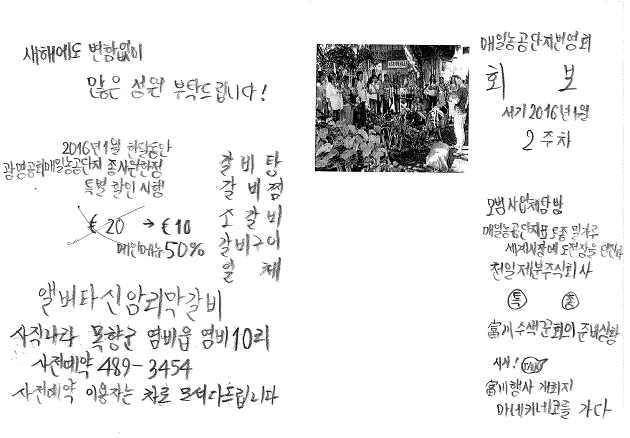 새해에도 변함없이
많은 성원 부탁드립니다!
2016년1월 한달동안
광명공회매일농공단지 종사원한정
특별 할인 시행
€20 → €10
메인메뉴 50%
갈비탕
갈비찜
소갈비
갈비구이
일체
앨버타신암리막갈비
사직나라 목향군 염비읍 염비10리
사전예약 489-3454
사전예약 이용자는 차로 모셔다드립니다
매일농공단지번영회
회 보
서기 2016년1월
2주차
모범사업체탐방
매일농공단지표 토종 밀가루
세계시장에 도전장을
천일제분주식회사
특 종
富川 수색군회의 준비상황
시사! TALK
富川행사 개최지
마네키네코를 가다